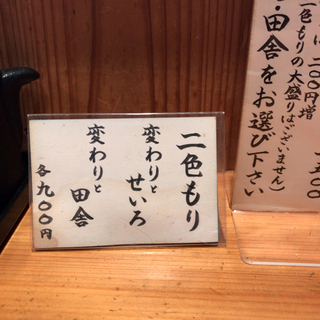 二色もり
変わりと
せいろ
変わりと
田舎
各九〇〇円
二〇〇円増
一色もりの大盛りはございません)
・田舎をお選び下さい